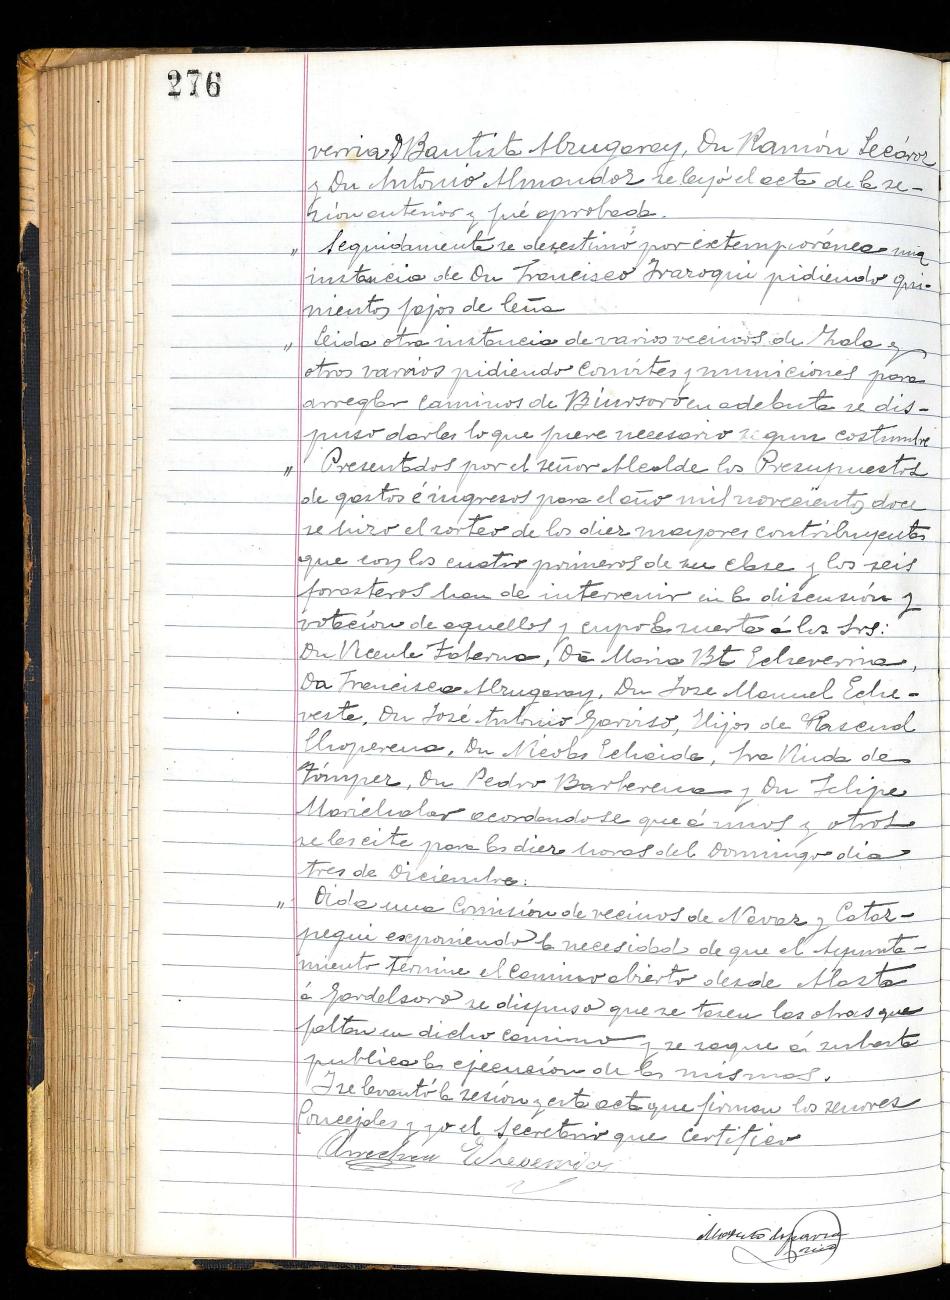 276
verria, Bautista Alzugaray, Dn Ramón Lecároz
y Dn Antonio Almandoz se leyó el acta de la se-
sion anterior y fué aprobada.
" Seguidamente se desestimó por extemporánea una
instancia de Dn Francisco Irazoqui pidiendo qui-
nientos fajos de leña
" Leida otra instancia de varios vecinos de Zala y
otros varios pidiendo convites y municiones para
arreglar caminos de en adelante se dis-
puso darles lo que fuere necesario segun costumbre
" Presentados por el señor Alcalde los Presupuestos
de gastos é ingresos para el año mil novecientos doce
se hizo el sorteo de los diez mayores contribuyentes
que con los cuatro primeros de su clase y los seis
forasteros han de intervenir en la discusión y
votación de aquellos y cupo la suerte á los Srs:
Dn Vicente Taberna, Da Maria Bta Echeverria,
Da Francisca Alzugaray, Dn Jose Manuel Eche-
veste, Dn José Antonio Garviso, Hijos de Pascual
Choperena, Dn Nicolas Echaide, Sra Viuda de
Zómper, Dn Pedro Barberena y Dn Felipe
Marichalar acordandose que á unos y otros
se les cite para las diez horas del Domingo dia
tres de Diciembre.
" Oida una Comisión de vecinos de Navaz y
exponiendo la necesidad de que el Ayunta-
miento termine el camino abierto desde
á se dispuso que se tasen las obras que
faltan en dicho camino y se saque á subasta
publica la ejecución de las mismas.
Y se levantó la sesión y esta acta que firman los señores
Concejales y yo el Secretario que Certifico
Echeverria